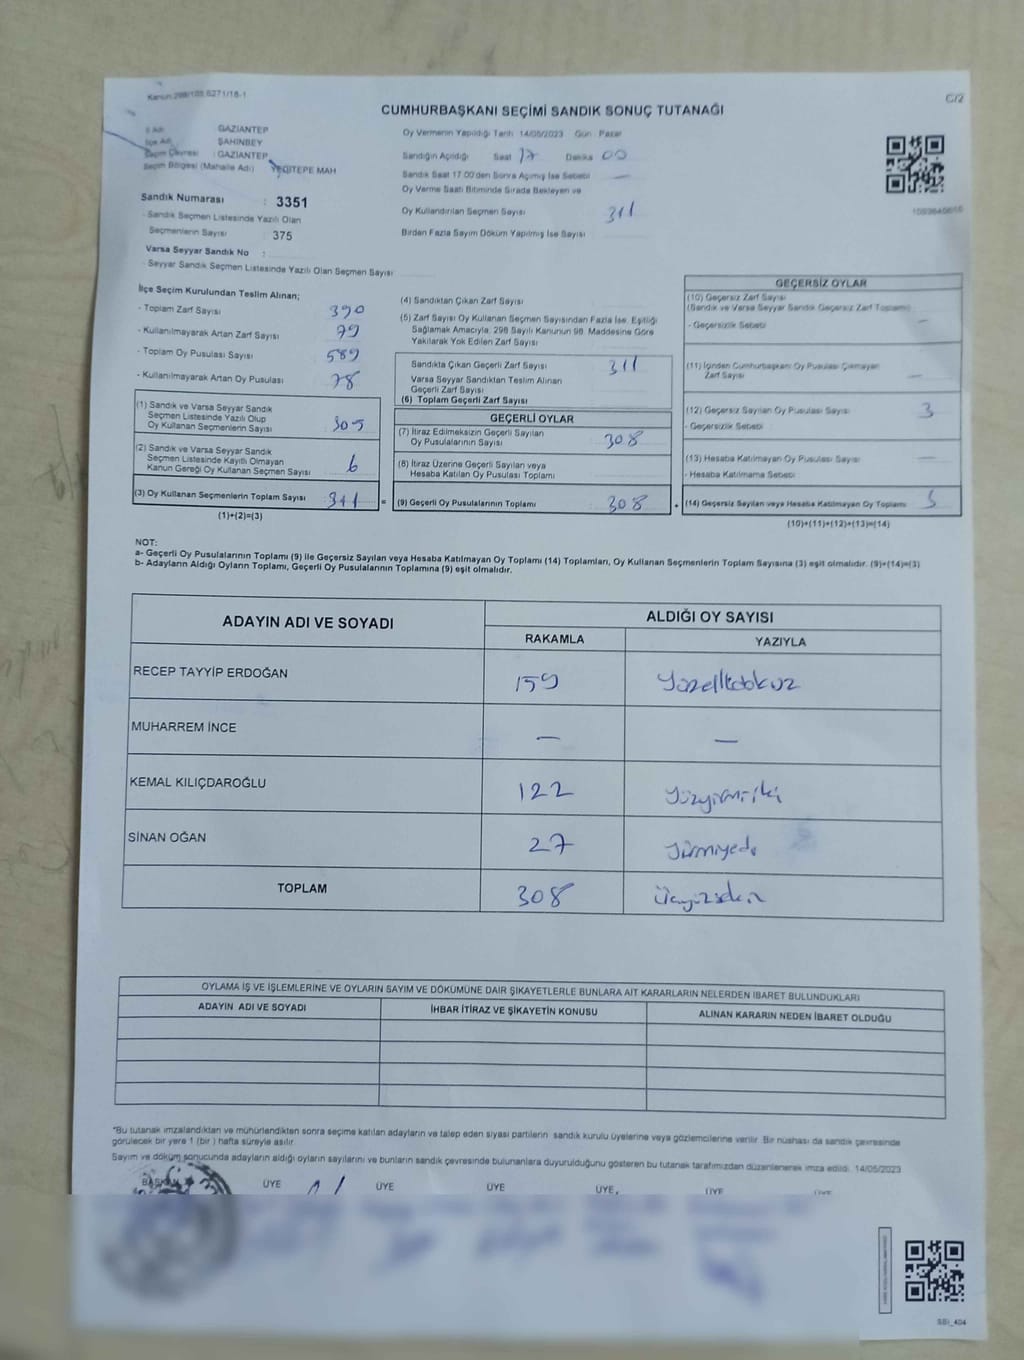 Kanun:298/105,6271/16-1
C/2
CUMHURBAŞKANI SEÇİMİ SANDIK SONUÇ TUTANAĞI
İl Adı : GAZİANTEP
İlçe Adı : ŞAHİNBEY
Seçim Çevresi : GAZİANTEP
Seçim Bölgesi (Mahalle Adı) : YEDİTEPE MAH
Sandık Numarası : 3351
- Sandık Seçmen Listesinde Yazılı Olan
Seçmenlerin Sayısı : 375
Varsa Seyyar Sandık No :
- Seyyar Sandık Seçmen Listesinde Yazılı Olan Seçmen Sayısı
Oy Vermenin Yapıldığı Tarih 14/05/2023 Gün : Pazar
Sandığın Açıldığı Saat 17 Dakika 00
Sandık Saat 17.00'den Sonra Açılmış İse Sebebi —
Oy Verme Saati Bitiminde Sırada Bekleyen ve
Oy Kullandırılan Seçmen Sayısı 311
Birden Fazla Sayım Döküm Yapılmış İse Sayısı
İlçe Seçim Kurulundan Teslim Alınan;
- Toplam Zarf Sayısı 390
- Kullanılmayarak Artan Zarf Sayısı 79
- Toplam Oy Pusulası Sayısı 589
- Kullanılmayarak Artan Oy Pusulası 78
(1) Sandık ve Varsa Seyyar Sandık
Seçmen Listesinde Yazılı Olup
Oy Kullanan Seçmenlerin Sayısı 305
(2) Sandık ve Varsa Seyyar Sandık
Seçmen Listesinde Kayıtlı Olmayan
Kanun Gereği Oy Kullanan Seçmen Sayısı 6
(3) Oy Kullanan Seçmenlerin Toplam Sayısı 311 =
(1)+(2)=(3)
(4) Sandıktan Çıkan Zarf Sayısı
(5) Zarf Sayısı Oy Kullanan Seçmen Sayısından Fazla İse, Eşitliği
Sağlamak Amacıyla, 298 Sayılı Kanunun 98. Maddesine Göre
Yakılarak Yok Edilen Zarf Sayısı
Sandıkta Çıkan Geçerli Zarf Sayısı 311
Varsa Seyyar Sandıktan Teslim Alınan
Geçerli Zarf Sayısı
(6) Toplam Geçerli Zarf Sayısı
GEÇERLİ OYLAR
(7) İtiraz Edilmeksizin Geçerli Sayılan
Oy Pusulalarının Sayısı 308
(8) İtiraz Üzerine Geçerli Sayılan veya
Hesaba Katılan Oy Pusulası Toplamı
(9) Geçerli Oy Pusulalarının Toplamı 308 +
GEÇERSİZ OYLAR
(10) Geçersiz Zarf Sayısı
(Sandık ve Varsa Seyyar Sandık Geçersiz Zarf Toplamı)
- Geçersizlik Sebebi —
(11) İçinden Cumhurbaşkanı Oy Pusulası Çıkmayan
Zarf Sayısı —
(12) Geçersiz Sayılan Oy Pusulası Sayısı 3
- Geçersizlik Sebebi
(13) Hesaba Katılmayan Oy Pusulası Sayısı —
- Hesaba Katılmama Sebebi
(14) Geçersiz Sayılan veya Hesaba Katılmayan Oy Toplamı 3
(10)+(11)+(12)+(13)=(14)
NOT:
a- Geçerli Oy Pusulalarının Toplamı (9) ile Geçersiz Sayılan veya Hesaba Katılmayan Oy Toplamı (14) Toplamları, Oy Kullanan Seçmenlerin Toplam Sayısına (3) eşit olmalıdır. (9)+(14)=(3)
b- Adayların Aldığı Oyların Toplamı, Geçerli Oy Pusulalarının Toplamına (9) eşit olmalıdır.
ADAYIN ADI VE SOYADI
ALDIĞI OY SAYISI
RAKAMLA YAZIYLA
RECEP TAYYİP ERDOĞAN 159 Yüzellidokuz
MUHARREM İNCE — —
KEMAL KILIÇDAROĞLU 122 Yüzyirmiiki
SİNAN OĞAN 27 Yirmiyedi
TOPLAM 308 Üçyüzsekiz
OYLAMA İŞ VE İŞLEMLERİNE VE OYLARIN SAYIM VE DÖKÜMÜNE DAİR ŞİKAYETLERLE BUNLARA AİT KARARLARIN NELERDEN İBARET BULUNDUKLARI
ADAYIN ADI VE SOYADI İHBAR İTİRAZ VE ŞİKAYETİN KONUSU ALINAN KARARIN NEDEN İBARET OLDUĞU
*Bu tutanak imzalandıktan ve mühürlendikten sonra seçime katılan adayların ve talep eden siyasi partilerin sandık kurulu üyelerine veya gözlemcilerine verilir. Bir nüshası da sandık çevresinde
görülecek bir yere 1 (bir ) hafta süreyle asılır.
Sayım ve döküm sonucunda adayların aldığı oyların sayılarını ve bunların sandık çevresinde bulunanlara duyurulduğunu gösteren bu tutanak tarafımızdan düzenlenerek imza edildi. 14/05/2023
BAŞKAN ÜYE ÜYE ÜYE ÜYE ÜYE ÜYE
SBİ_404